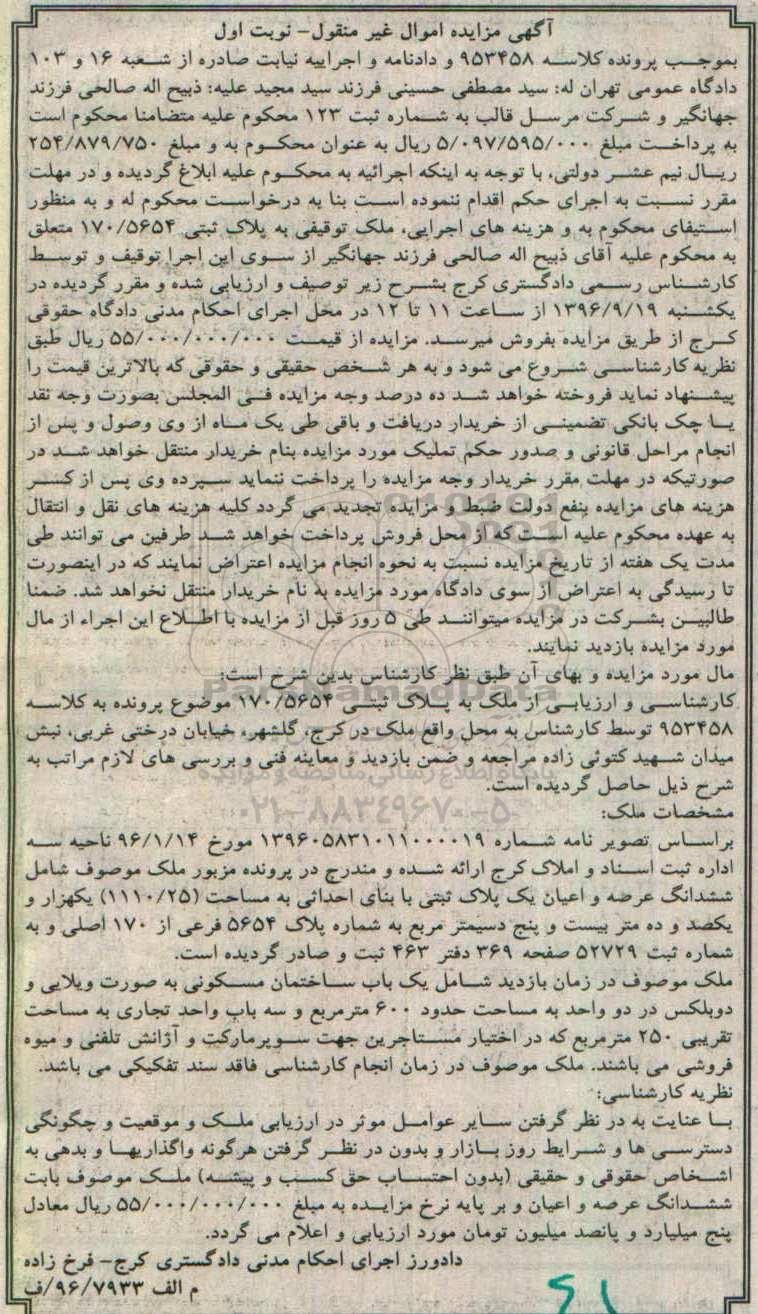 آگهی مزایده اموال غیر منقول- نوبت اول
بموجب پرونده کلاسه ۹۵۳۴۵۸ و دادنامه و اجراییه نیابت صادره از شعبه ۱۶ و ۱۰۳
دادگاه عمومی تهران له: سید مصطفی حسینی فرزند سید مجید علیه: ذبیح اله صالحی فرزند
جهانگیر و شرکت مرسل قالب به شماره ثبت ۱۲۳ محکوم علیه متضامنا محکوم است
به پرداخت مبلغ ۵/۰۹۷/۵۹۵/۰۰۰ ریال به عنوان محکوم به و مبلغ ۲۵۴/۸۷۹/۷۵۰
ریال نیم عشر دولتی، با توجه به اینکه اجرائیه به محکوم علیه ابلاغ گردیده و در مهلت
مقرر نسبت به اجرای حکم اقدام ننموده است بنا به درخواست محکوم له و به منظور
استیفای محکوم به و هزینه های اجرایی، ملک توقیفی به پلاک ثبتی ۱۷۰/۵۶۵۴ متعلق
به محکوم علیه آقای ذبیح اله صالحی فرزند جهانگیر از سوی این اجرا توقیف و توسط
کارشناس رسمی دادگستری کرج بشرح زیر توصیف و ارزیابی شده و مقرر گردیده در
یکشنبه ۱۳۹۶/۹/۱۹ از ساعت ۱۱ تا ۱۲ در محل اجرای احکام مدنی دادگاه حقوقی
کرج از طریق مزایده بفروش میرسد. مزایده از قیمت ۵۵/۰۰۰/۰۰۰/۰۰۰ ریال طبق
نظریه کارشناسی شروع می شود و به هر شخص حقیقی و حقوقی که بالاترین قیمت را
پیشنهاد نماید فروخته خواهد شد ده درصد وجه مزایده فی المجلس بصورت وجه نقد
یا چک بانکی تضمینی از خریدار دریافت و باقی طی یک ماه از وی وصول و پس از
انجام مراحل قانونی و صدور حکم تملیک مورد مزایده بنام خریدار منتقل خواهد شد در
صورتیکه در مهلت مقرر خریدار وجه مزایده را پرداخت ننماید سپرده وی پس از کسر
هزینه های مزایده بنفع دولت ضبط و مزایده تجدید می گردد کلیه هزینه های نقل و انتقال
به عهده محکوم علیه است که از محل فروش پرداخت خواهد شد طرفین می توانند طی
مدت یک هفته از تاریخ مزایده نسبت به نحوه انجام مزایده اعتراض نمایند که در اینصورت
تا رسیدگی به اعتراض از سوی دادگاه مورد مزایده به نام خریدار منتقل نخواهد شد. ضمنا
طالبین بشرکت در مزایده میتوانند طی ۵ روز قبل از مزایده با اطلاع این اجراء از مال
مورد مزایده بازدید نمایند.
مال مورد مزایده و بهای آن طبق نظر کارشناس بدین شرح است:
کارشناسی و ارزیابی از ملک به پلاک ثبتی ۱۷۰/۵۶۵۴ موضوع پرونده به کلاسه
۹۵۳۴۵۸ توسط کارشناس به محل واقع ملک در کرج، گلشهر، خیابان درختی غربی، نبش
میدان شهید کتوئی زاده مراجعه و ضمن بازدید و معاینه فنی و بررسی های لازم مراتب به
شرح ذیل حاصل گردیده است.
۰۲۱-۸۸۳۴۹۶۷۰-۵
مشخصات ملک:
براساس تصویر نامه شماره ۱۳۹۶۰۵۸۳۱۰۱۱۰۰۰۰۱۹ مورخ ۹۶/۱/۱۴ ناحیه سه
اداره ثبت اسناد و املاک کرج ارائه شده و مندرج در پرونده مزبور ملک موصوف شامل
ششدانگ عرصه و اعیان یک پلاک ثبتی با بنای احداثی به مساحت (۱۱۱۰/۲۵) یکهزار و
یکصد و ده متر بیست و پنج دسیمتر مربع به شماره پلاک ۵۶۵۴ فرعی از ۱۷۰ اصلی و به
شماره ثبت ۵۲۷۲۹ صفحه ۳۶۹ دفتر ۴۶۳ ثبت و صادر گردیده است.
ملک موصوف در زمان بازدید شامل یک باب ساختمان مسکونی به صورت ویلایی و
دوبلکس در دو واحد به مساحت حدود ۶۰۰ مترمربع و سه باب واحد تجاری به مساحت
تقریبی ۲۵۰ مترمربع که در اختیار مستاجرین جهت سوپرمارکت و آژانش تلفنی و میوه
فروشی می باشند. ملک موصوف در زمان انجام کارشناسی فاقد سند تفکیکی می باشد.
نظریه کارشناسی:
با عنایت به در نظر گرفتن سایر عوامل موثر در ارزیابی ملک و موقعیت و چگونگی
دسترسی ها و شرایط روز بازار و بدون در نظر گرفتن هرگونه واگذاریها و بدهی به
اشخاص حقوقی و حقیقی (بدون احتساب حق کسب و پیشه) ملک موصوف بابت
ششدانگ عرصه و اعیان و بر پایه نرخ مزایده به مبلغ ۵۵/۰۰۰/۰۰۰/۰۰۰ ریال معادل
پنج میلیارد و پانصد میلیون تومان مورد ارزیابی و اعلام می گردد.
دادورز اجرای احکام مدنی دادگستری کرج- فرخ زاده
م الف ۹۶/۷۹۳۳/ف